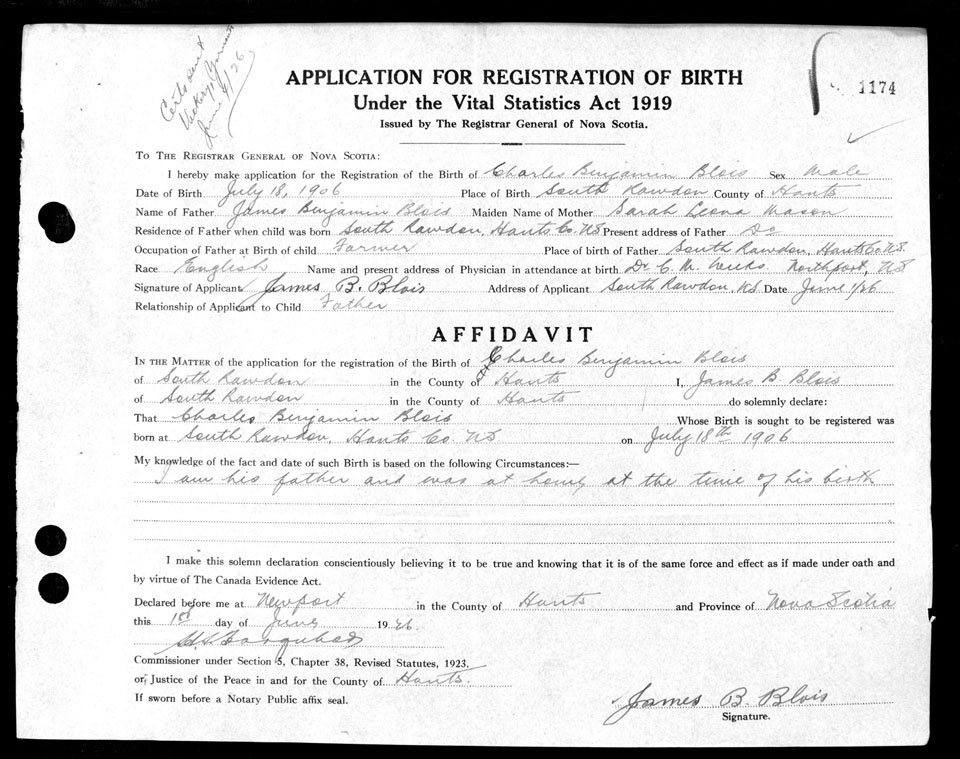 Certs sent
June 4/26
1174
APPLICATION FOR REGISTRATION OF BIRTH
Under the Vital Statistics Act 1919
Issued by The Registrar General of Nova Scotia.
To The Registrar General of Nova Scotia:
I hereby make application for the Registration of the Birth of Charles Benjamin Blois Sex Male
Date of Birth July 18, 1906 Place of Birth South Rawdon County of Hants
Name of Father James Benjamin Blois Maiden Name of Mother Sarah Leona Mason
Residence of Father when child was born South Rawdon, Hants Co. NS Present address of Father Do
Occupation of Father at Birth of child Farmer Place of birth of Father South Rawdon, Hants Co. N.S.
Race English Name and present address of Physician in attendance at birth Dr. C. M. Weeks. Northport, NS
Signature of Applicant James B. Blois Address of Applicant South Rawdon, NS Date June 1/26
Relationship of Applicant to Child Father
AFFIDAVIT
In the Matter of the application for the registration of the Birth of Charles Benjamin Blois
of South Rawdon in the County of Hants I, James B. Blois
of South Rawdon in the County of Hants do solemnly declare:
That Charles Benjamin Blois Whose Birth is sought to be registered was
born at South Rawdon, Hants Co. NS on July 18th 1906
My knowledge of the fact and date of such Birth is based on the following Circumstances:—
I am his father and was at home at the time of his birth
I make this solemn declaration conscientiously believing it to be true and knowing that it is of the same force and effect as if made under oath and
by virtue of The Canada Evidence Act.
Declared before me at Newport in the County of Hants and Province of Nova Scotia
this 1st day of June 1926.
Commissioner under Section 5, Chapter 38, Revised Statutes, 1923.
or, Justice of the Peace in and for the County of Hants.
If sworn before a Notary Public affix seal.
James B. Blois
Signature.